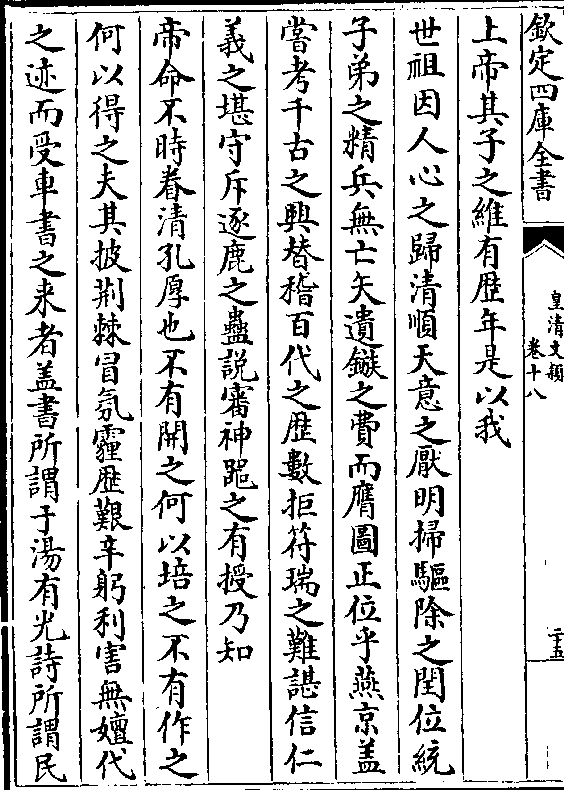 欽定四庫全書
皇清文穎
卷十八
二十五
上帝其子之維有歴年是以我
世祖因人心之歸清順天意之厭明掃驅除之閏位統
子弟之精兵無亡矢遺鏃之費而膺圖正位乎燕京盖
嘗考千古之興替稽百代之歴數拒符瑞之難諶信仁
義之堪守斥逐鹿之蠱説審神噐之有授乃知
帝命不時眷清孔厚也不有開之何以培之不有作之
何以得之夫其披荆棘冒氛霾歴艱辛躬利害無嬗代
之迹而受車書之来者盖書所謂于湯有光詩所謂民